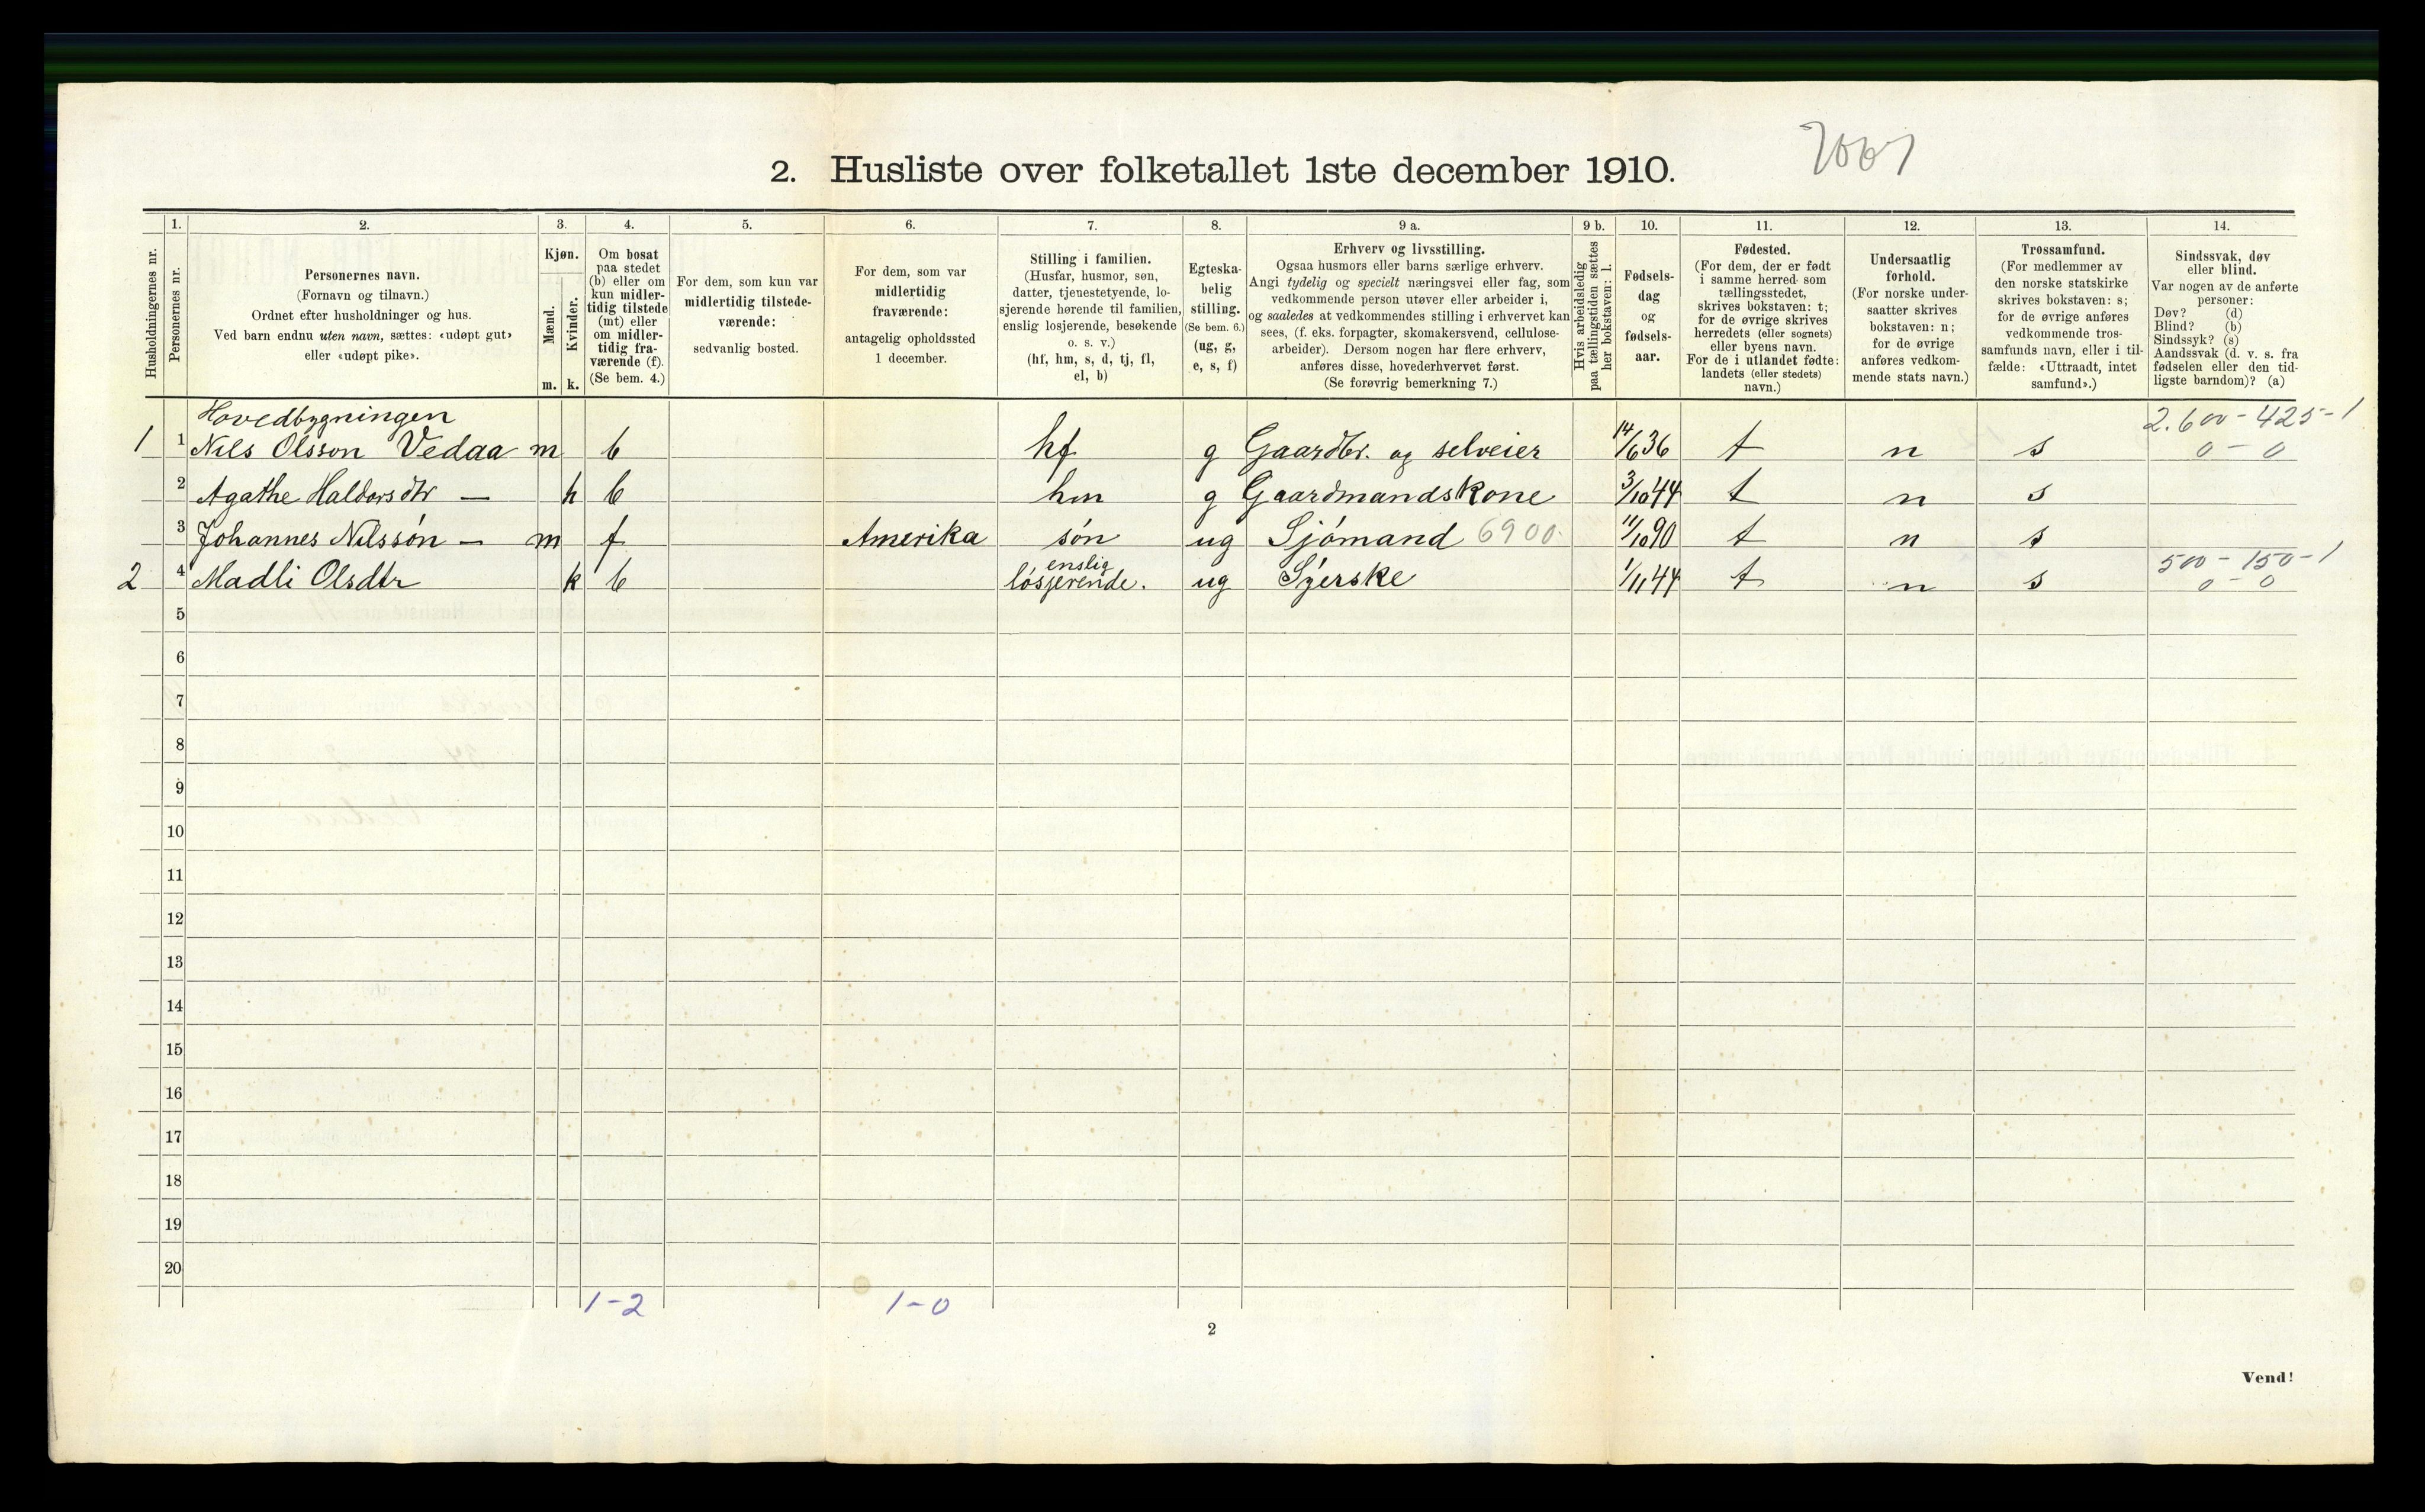 2. Husliste over folketallet 1ste december 1910.
1. 2. 3. 4. 5. 6. 7. 8. 9 a. 9 b. 10. 11. 12. 13. 14.
Husholdningernes nr.
Personernes nr.
Personernes navn.
(Fornavn og tilnavn.)
Ordnet efter husholdninger og hus.
Ved barn endnu uten navn, sættes: «udøpt gut»
eller «udøpt pike».
Kjøn.
Mænd.
Kvinder.
m. k.
Om bosat
paa stedet
(b) eller om
kun midler-
tidig tilstede
(mt) eller
om midler-
tidig fra-
værende (f).
(Se bem. 4.)
For dem, som kun var
midlertidig tilstede-
værende:
sedvanlig bosted.
For dem, som var
midlertidig
fraværende:
antagelig opholdssted
1 december.
Stilling i familien.
(Husfar, husmor, søn,
datter, tjenestetyende, lo-
sjerende hørende til familien,
enslig losjerende, besøkende
o. s. v.)
(hf, hm, s, d, tj, fl,
el, b)
Egteska-
belig
stilling.
(Se bem. 6.)
(ug, g,
e, s, f)
Erhverv og livsstilling.
Ogsaa husmors eller barns særlige erhverv.
Angi tydelig og specielt næringsvei eller fag, som
vedkommende person utøver eller arbeider i,
og saaledes at vedkommendes stilling i erhvervet kan
sees, (f. eks. forpagter, skomakersvend, cellulose-
arbeider). Dersom nogen har flere erhverv,
anføres disse, hovederhvervet først.
(Se forøvrig bemerkning 7.)
Hvis arbeidsledig
paa tællingstiden sættes
her bokstaven: l.
Fødsels-
dag
og
fødsels-
aar.
Fødested.
(For dem, der er født
i samme herred som
tællingsstedet,
skrives bokstaven: t;
for de øvrige skrives
herredets (eller sognets)
eller byens navn.
For de i utlandet fødte:
landets (eller stedets)
navn.)
Undersaatlig
forhold.
(For norske under-
saatter skrives
bokstaven: n;
for de øvrige
anføres vedkom-
mende stats navn.)
Trossamfund.
(For medlemmer av
den norske statskirke
skrives bokstaven: s;
for de øvrige anføres
vedkommende tros-
samfunds navn, eller i til-
fælde: «Uttraadt, intet
samfund».)
Sindssvak, døv
eller blind.
Var nogen av de anførte
personer:
Døv? (d)
Blind? (b)
Sindssyk? (s)
Aandssvak (d. v. s. fra
fødselen eller den tid-
ligste barndom)? (a)
Hovedbygningen 2.600 - 425 - 1
1 1 Nils Olsson Vedaa m b hf g Gaardbr. og selveier 14/6 36 t n s 0 - 0
2 Agathe Haldorsdtr — k b hm g Gaardmandskone 3/10 44 t n s
3 Johannes Nilssón — m f Amerika són ug Sjómand 6900 11/10 90 t n s
enslig 500 - 150 - 1
2 4 Madli Olsdtr k b lósjerende. ug Syerske 1/11 44 t n s 0 - 0
5
6
7
8
9
10
11
12
13
14
15
16
17
18
19
20
1 - 2 1 - 0
2
Vend!